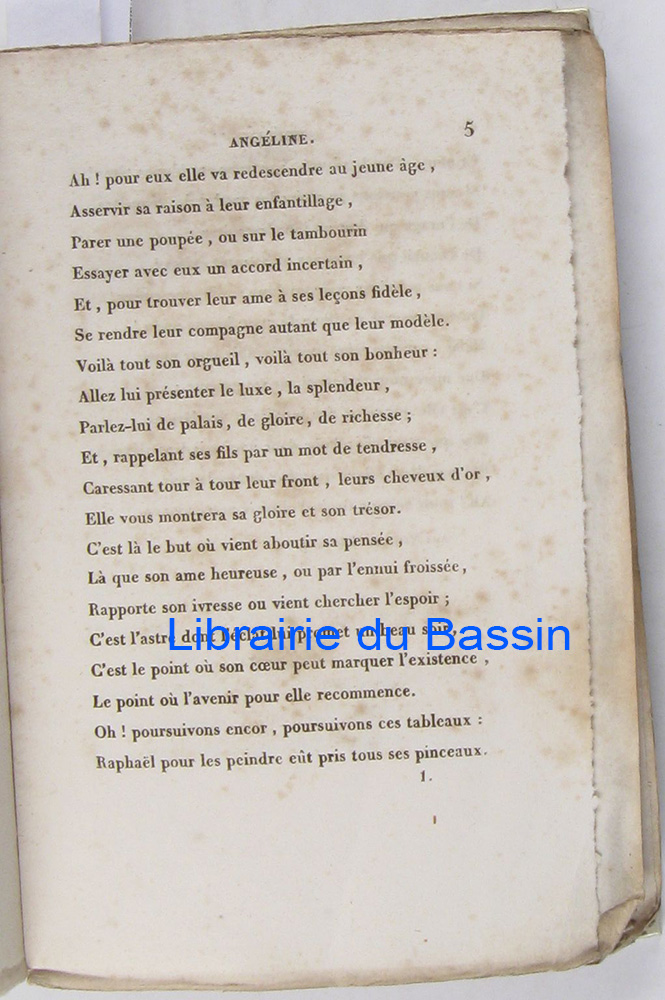 ANGÉLINE. 5
Ah ! pour eux elle va redescendre au jeune âge ,
Asservir sa raison à leur enfantillage ,
Parer une poupée , ou sur le tambourin
Essayer avec eux un accord incertain ,
Et , pour trouver leur ame à ses leçons fidèle ,
Se rendre leur compagne autant que leur modèle.
Voilà tout son orgueil , voilà tout son bonheur :
Allez lui présenter le luxe , la splendeur ,
Parlez-lui de palais, de gloire, de richesse ;
Et , rappelant ses fils par un mot de tendresse ,
Caressant tour à tour leur front , leurs cheveux d'or ,
Elle vous montrera sa gloire et son trésor.
C'est là le but où vient aboutir sa pensée ,
Là que son ame heureuse , ou par l'ennui froissée ,
Rapporte son ivresse ou vient chercher l'espoir ;
C'est l'astre dont l'éclat lui promet un beau soir ,
Librairie du Bassin
C'est le point où son cœur peut marquer l'existence ,
Le point où l'avenir pour elle recommence.
Oh ! poursuivons encor , poursuivons ces tableaux :
Raphaël pour les peindre eût pris tous ses pinceaux.
1.